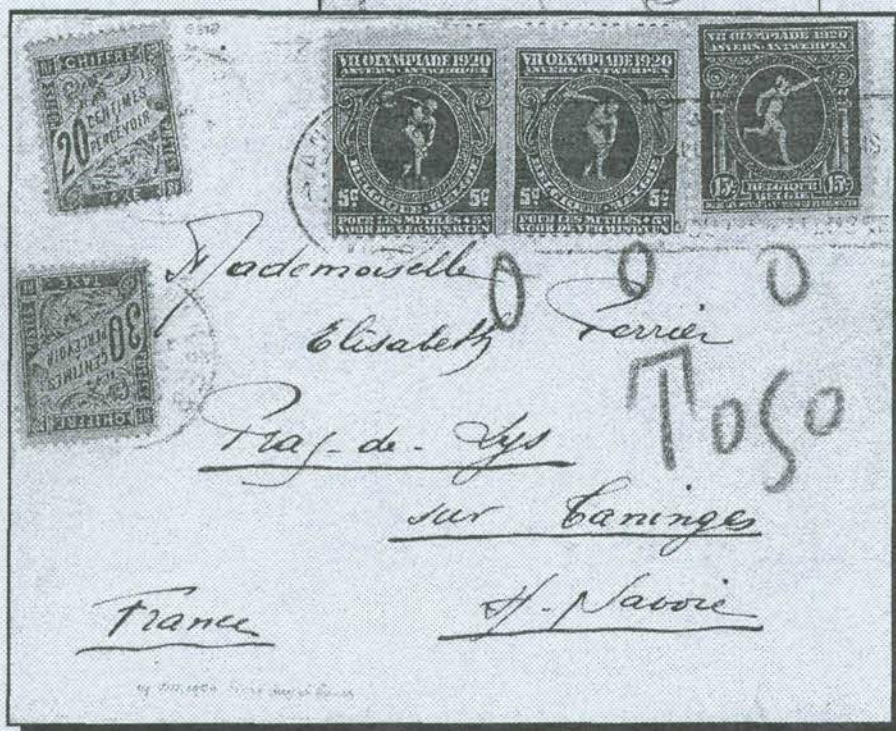 CHIFFRE
20
CENTIMES
A
PERCEVOIR
TAXE
POSTES
VII OLYMPIADE 1920
ANVERS-ANTWERPEN
BELGIQUE·BELGIË
5c 5c
POUR LES MUTILÉS +5c
VOOR DE VERMINKTEN
VII OLYMPIADE 1920
ANVERS-ANTWERPEN
BELGIQUE·BELGIË
5c 5c
POUR LES MUTILÉS +5c
VOOR DE VERMINKTEN
VII OLYMPIADE 1920
ANVERS-ANTWERPEN
15c 15c
BELGIQUE
BELGIË
CHIFFRE
30
CENTIMES
A
PERCEVOIR
TAXE
Mademoiselle
0 0 0
Elisabeth Perrier
T050
Praz-de-Lys
sur Taninges
France
H-Savoie